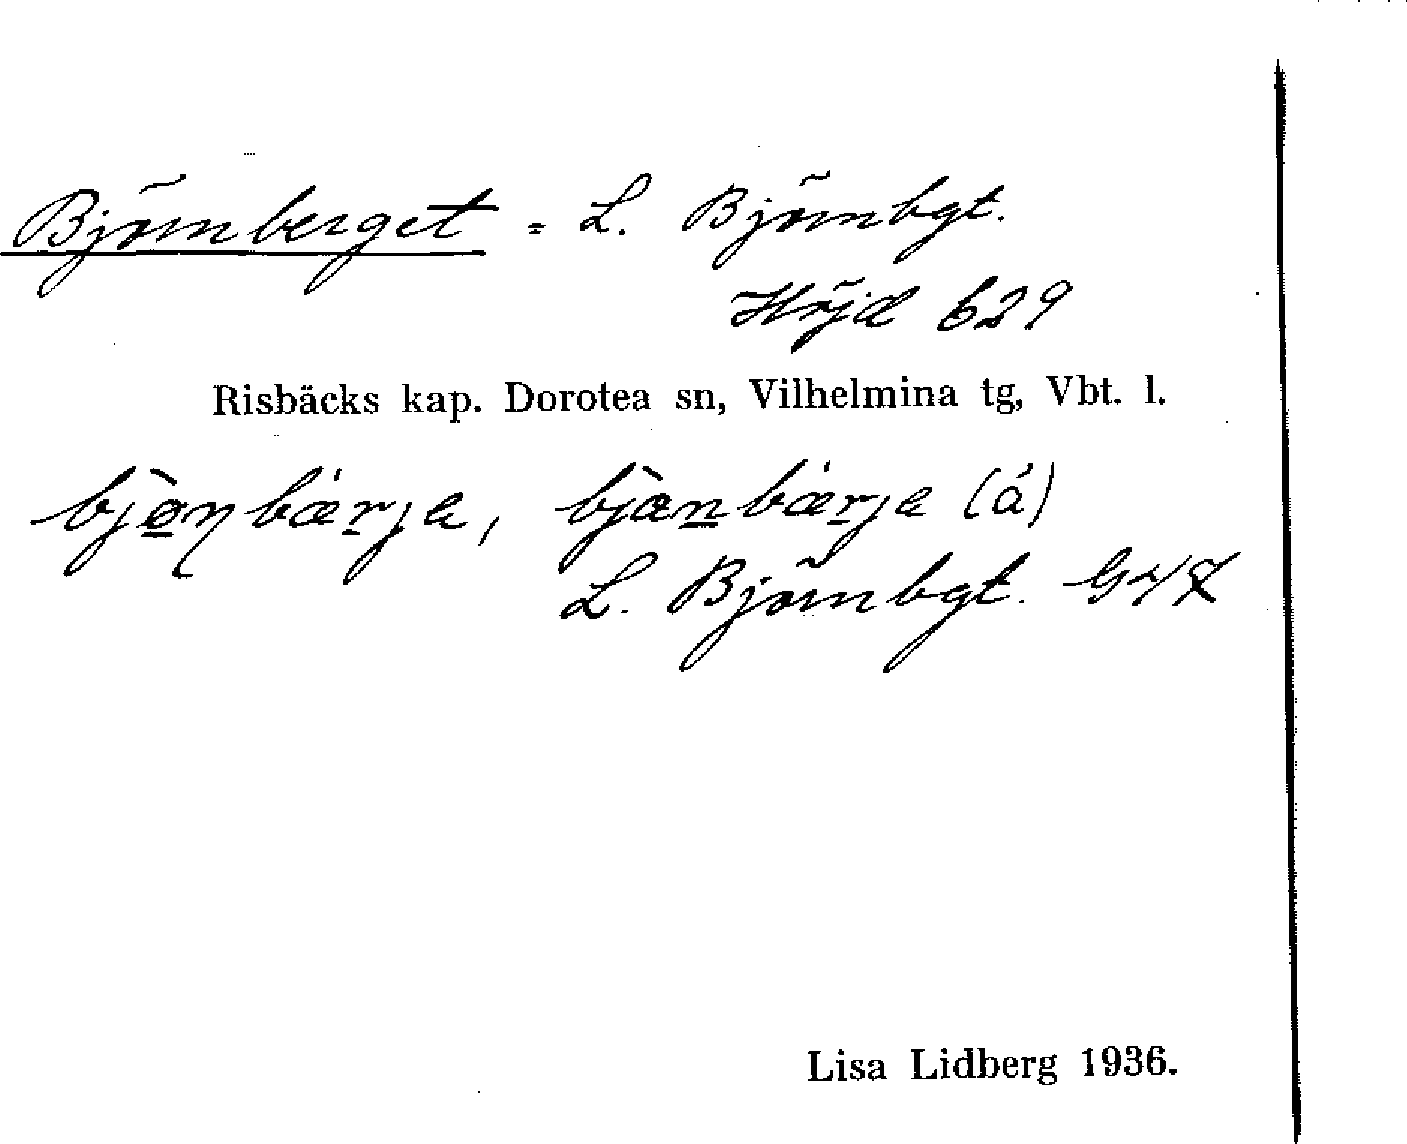 Björnberget = L. Björnbgt.
Höjd 629
Risbäcks kap. Dorotea sn, Vilhelmina tg, Vbt. l.
bjø̀ŋbæ̀rja, bjæ̀nbæ̀rja (å)
L. Björnbgt.
Lisa Lidberg 1936.